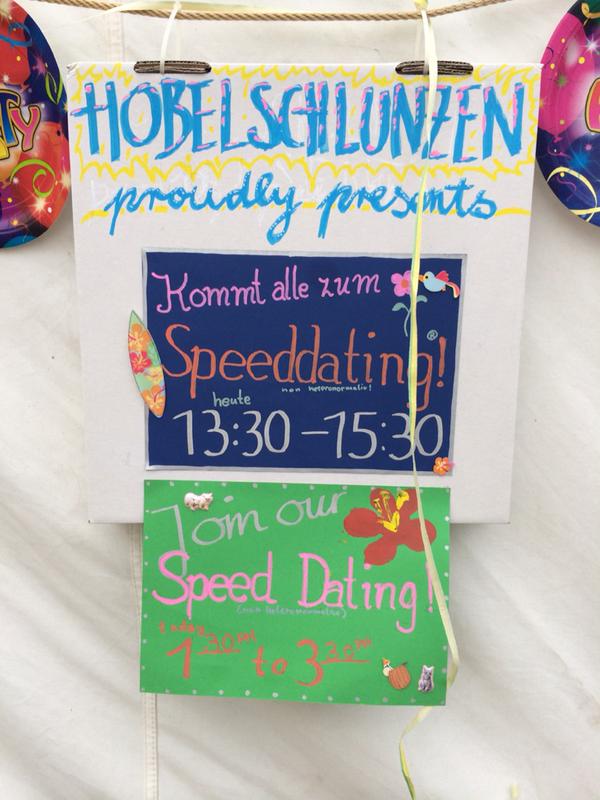 HOBELSCHLUNZEN
proudly presents
Kommt alle zum
Speeddating!®
non heteronormativ!
heute
13:30 – 15:30
Join our
Speed Dating!
(non heteronormative)
today
1 30 PM to 3 30 PM
TY